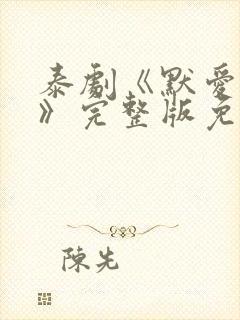 泰劇《默愛
》完整版免
陳先